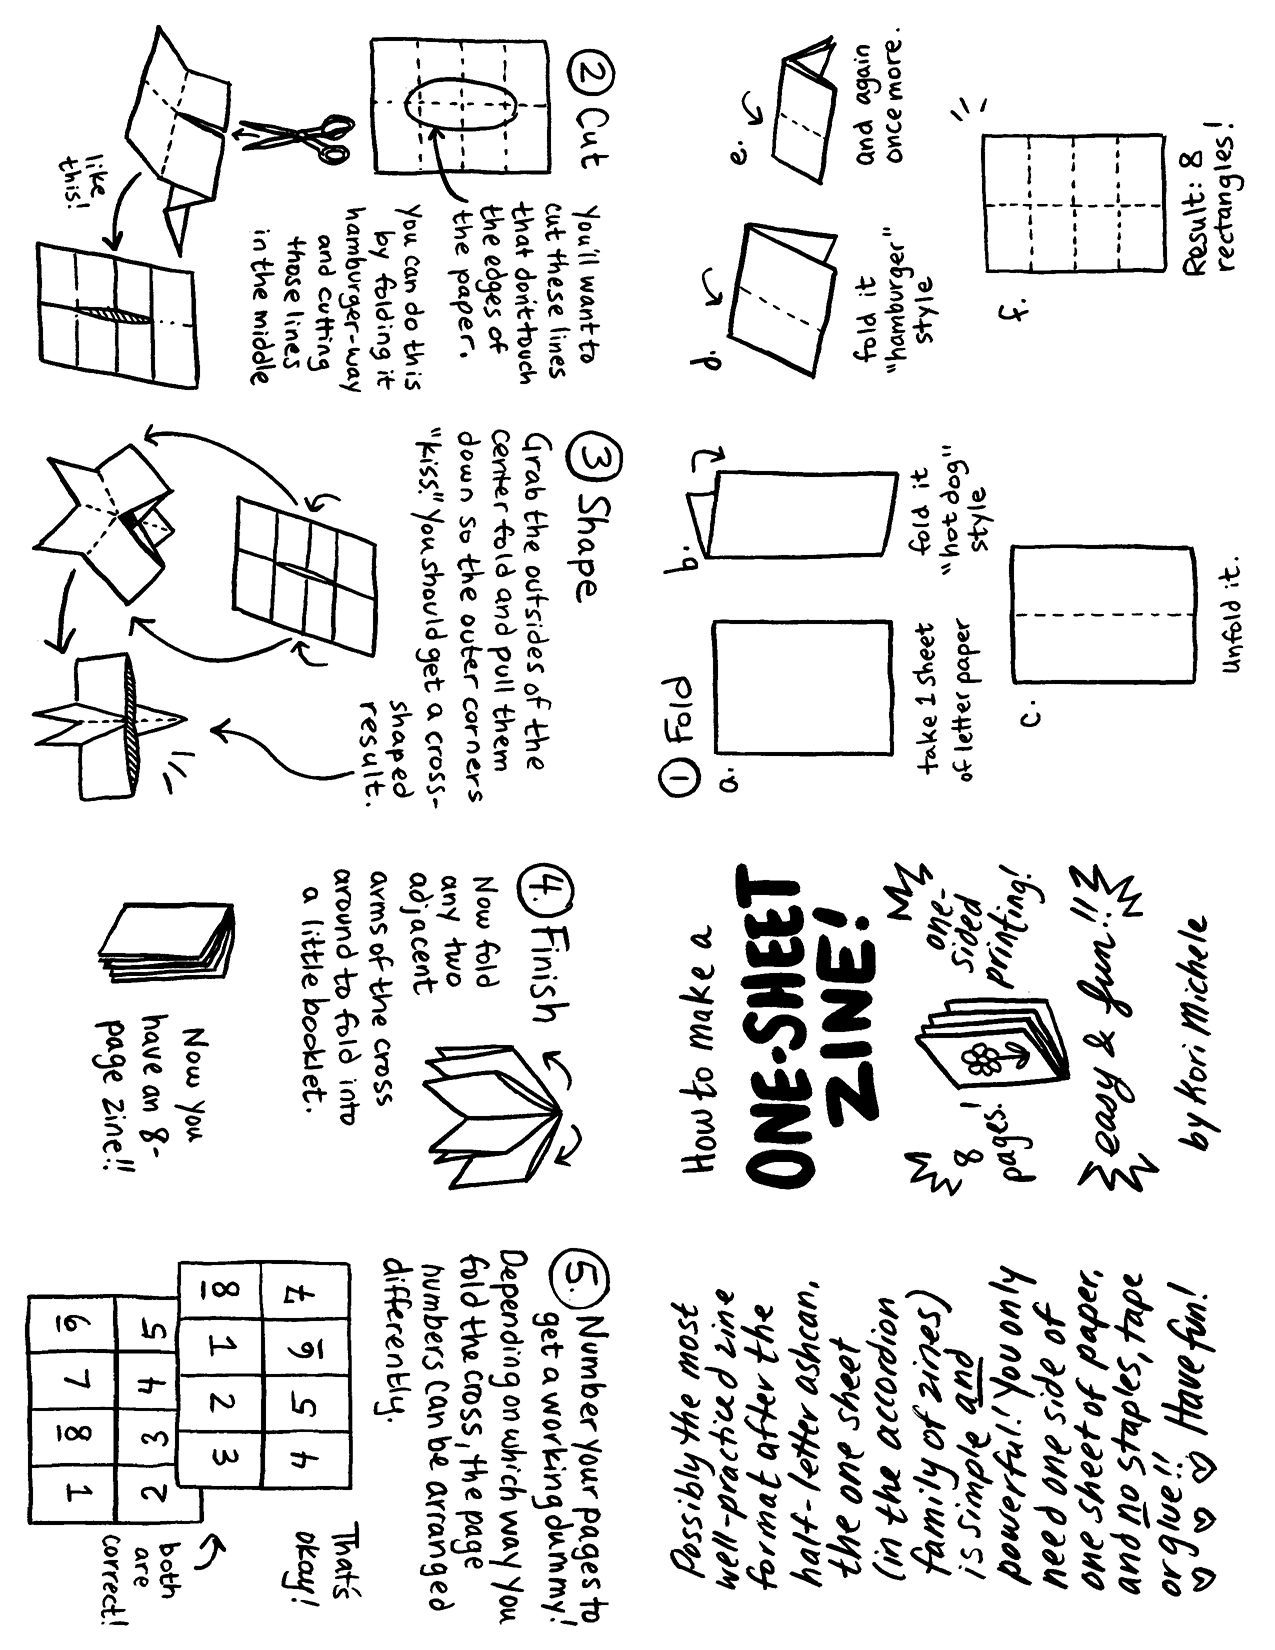 How to make a
ONE-SHEET
ZINE!
one-
sided
printing!
8
pages!
easy & fun!!
by Kori Michele
① Fold
a.
take 1 sheet
of letter paper
b.
fold it
"hot dog"
style
c.
Unfold it.
d.
fold it
"hamburger"
style
e.
and again
once more.
f.
Result: 8
rectangles!
② Cut
You'll want to
cut these lines
that don't touch
the edges of
the paper.
You can do this
by folding it
hamburger-way
and cutting
those lines
in the middle
like
this!
③ Shape
Grab the outsides of the
center fold and pull them
down so the outer corners
"kiss." You should get a cross-
shaped
result.
④. Finish
Now fold
any two
adjacent
arms of the cross
around to fold into
a little booklet.
Now you
have an 8-
page zine!!
⑤. Number your pages to
get a working dummy!
Depending on which way you
fold the cross, the page
numbers can be arranged
differently.
7 6 5 4
8 1 2 3
That's
okay!
5 4 3 2
6 7 8 1
both
are
correct!
Possibly the most
well-practiced zine
format after the
half-letter ashcan,
the one sheet
(in the accordion
family of zines)
is simple and
powerful! You only
need one side of
one sheet of paper,
and no staples, tape
or glue!! Have fun!
♡ ♡ ♡